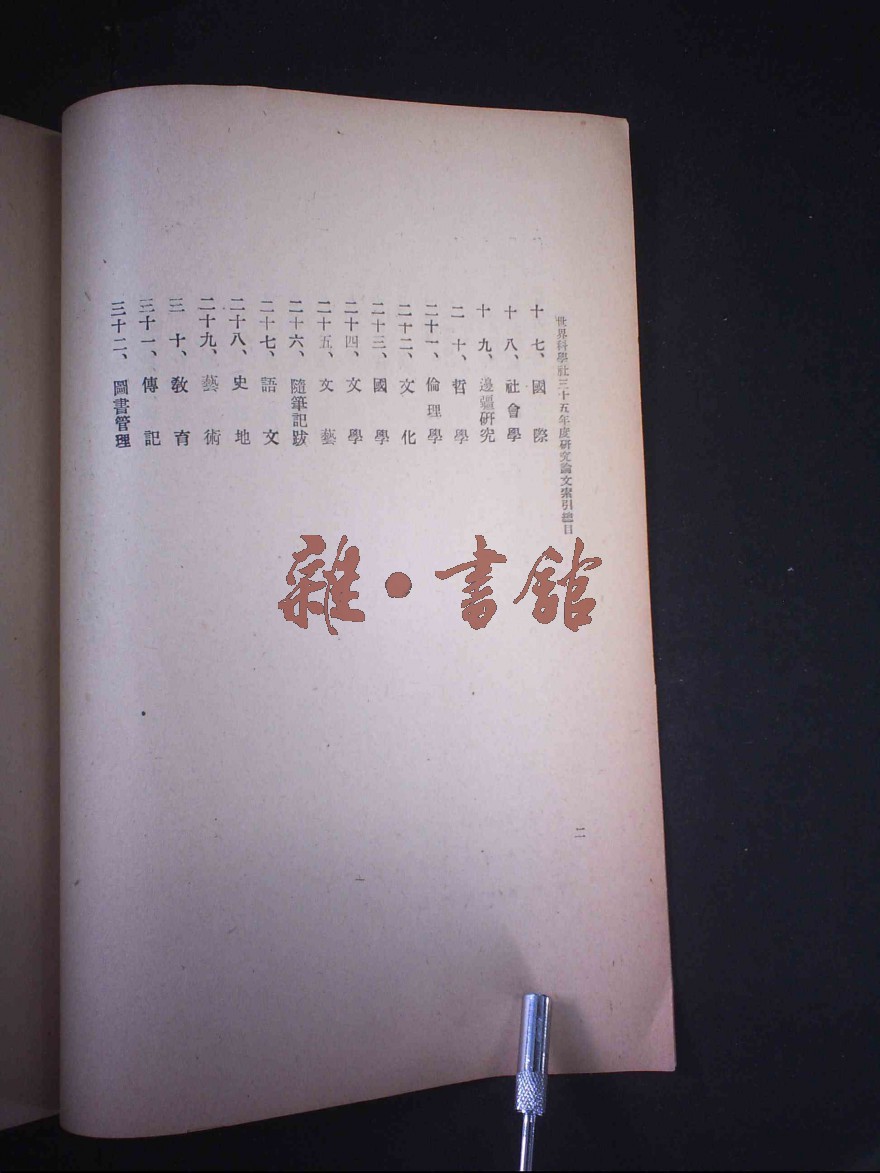 世界科學社三十五年度研究論文索引總目
十七、國際
十八、社會學
十九、邊疆研究
二十、哲學
二十一、倫理學
二十二、文化
二十三、國學
二十四、文學
二十五、文藝
二十六、隨筆記跋
二十七、語文
二十八、史地
二十九、藝術
三十、教育
三十一、傳記
三十二、圖書管理
二
雜·書館